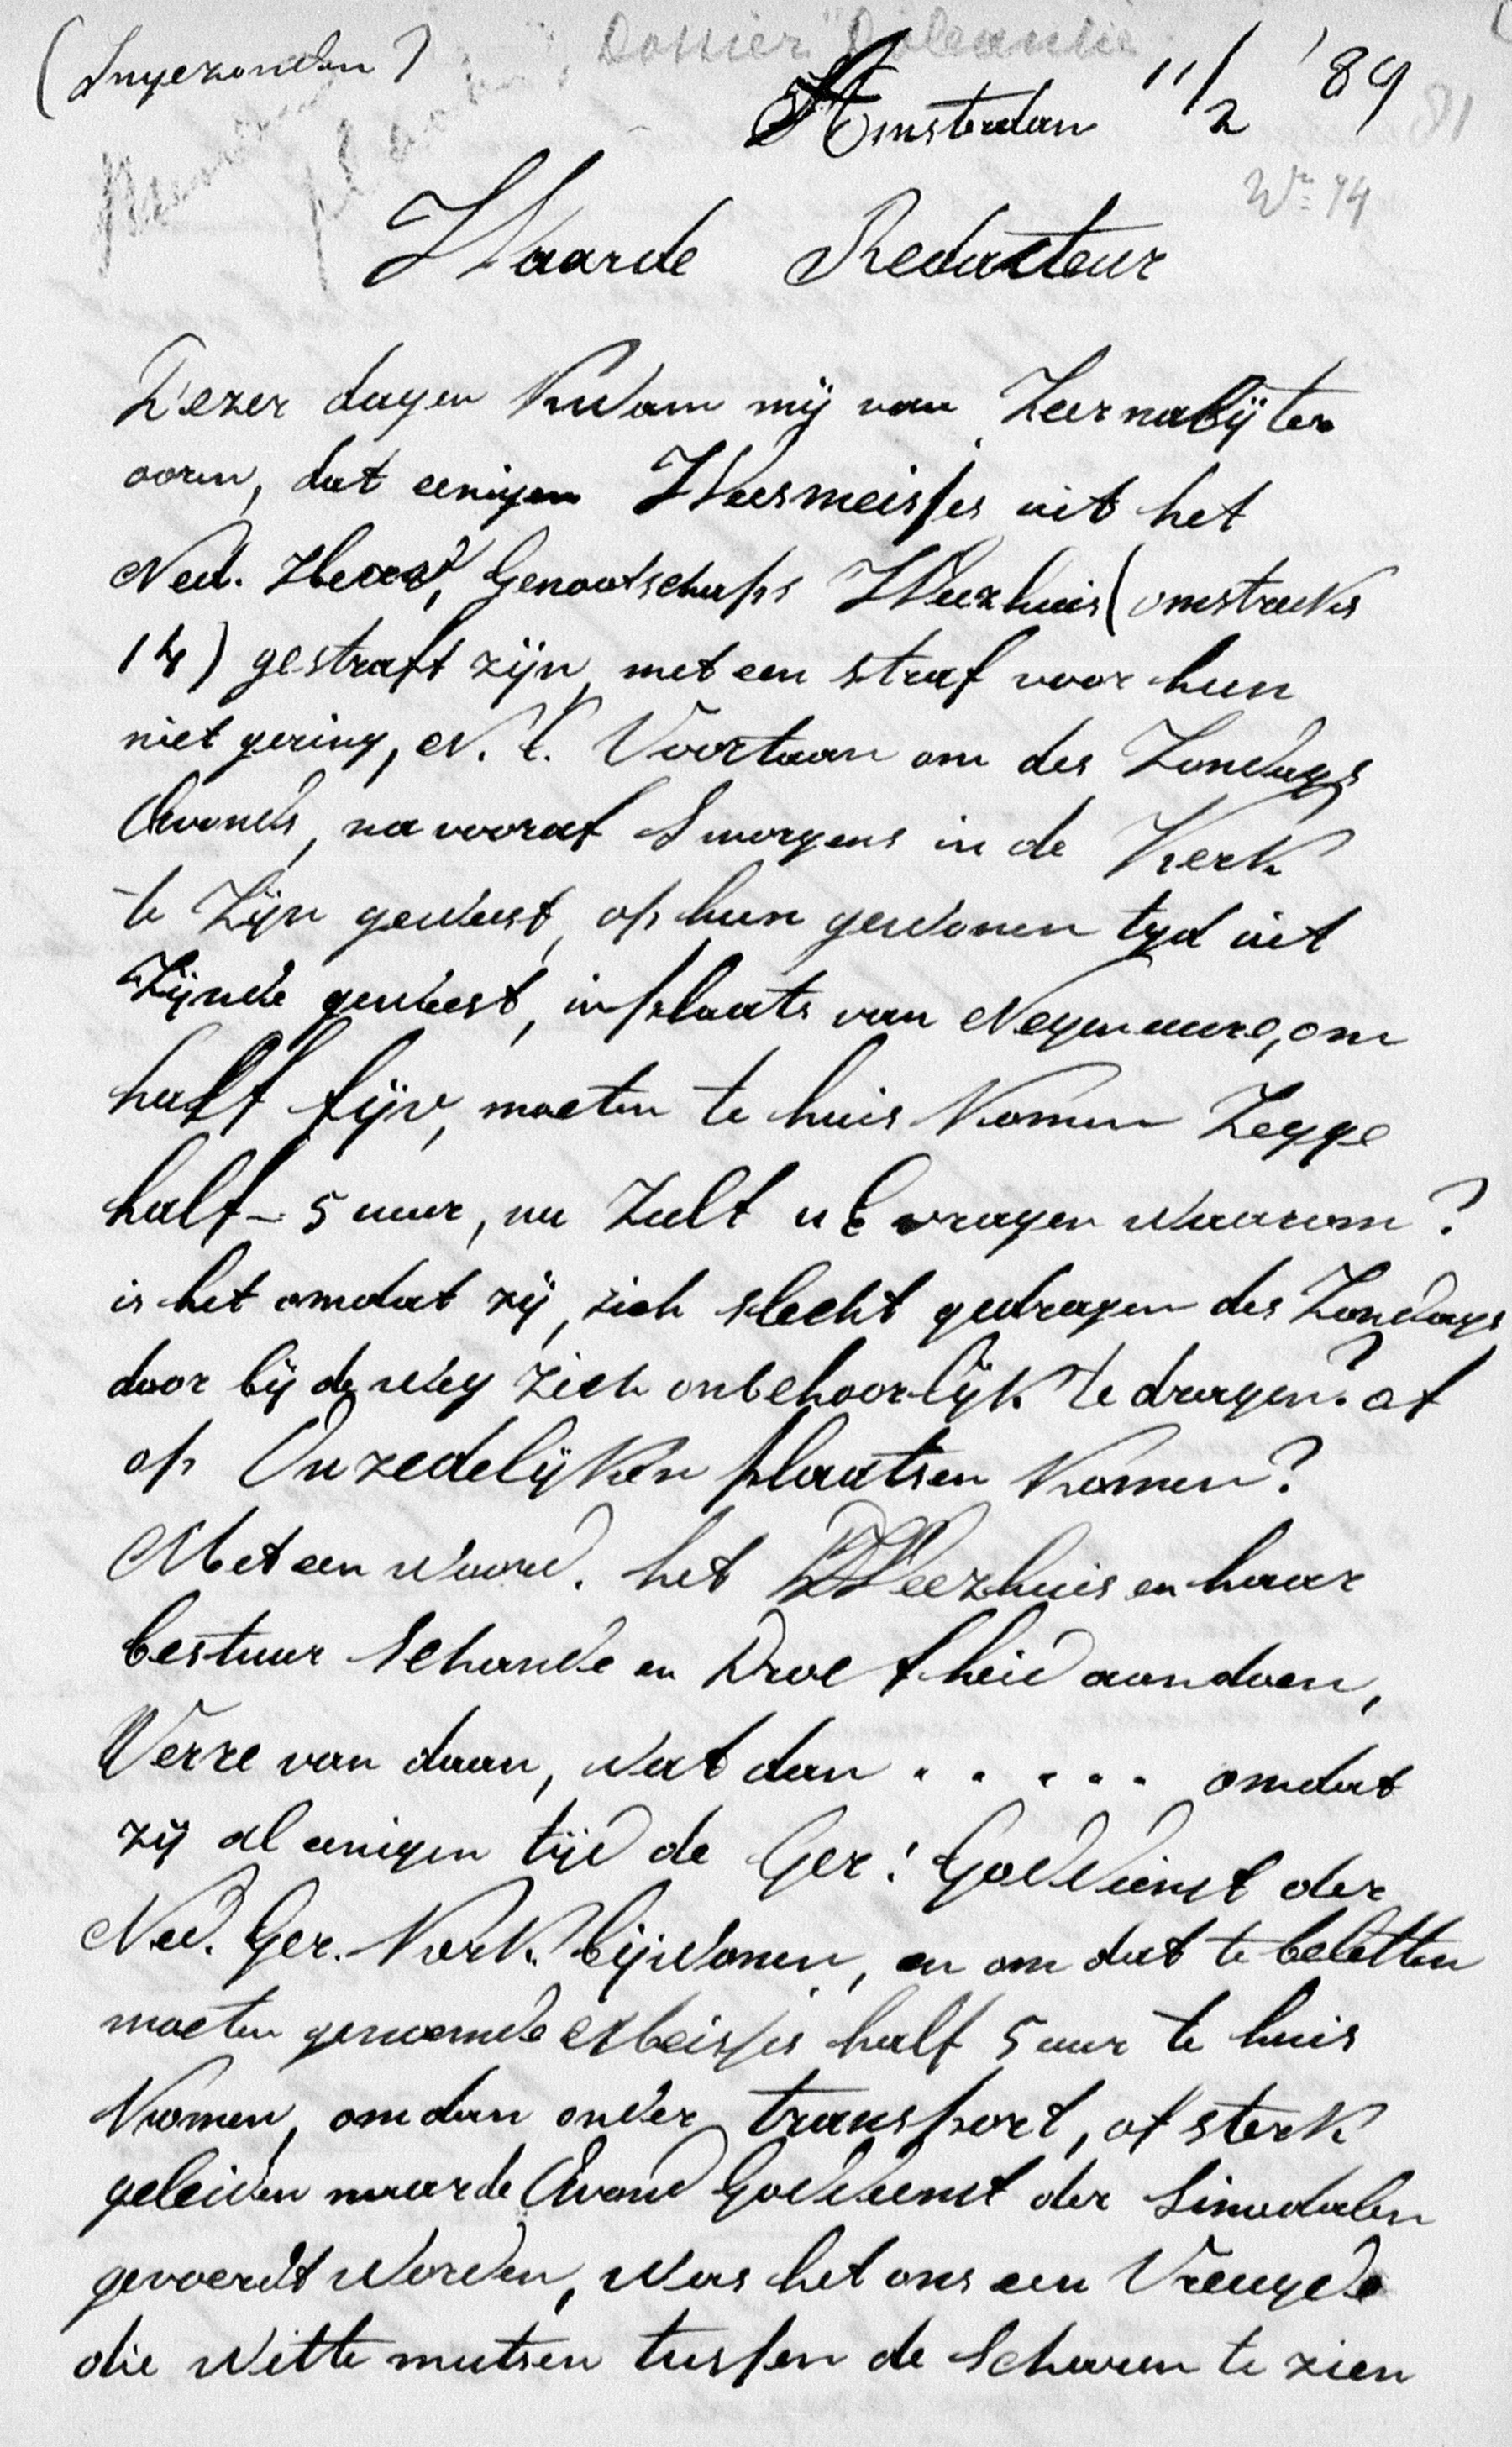 (Ingezonden)
Dossier "Doleantie"
Amsterdam 11/2 '89
81
Nº 94
Waarde Redacteur
Dezer dagen Kwam mij van Zeer nabij ter
ooren, dat eenigen Weesmeisjes uit het
Ned. Herv. Genootschaps Weezhuis (omstreeks
14) gestraft zijn, met een straf voor hun
niet gering, N. l. Voortaan om des Zondags
Avonds, na vooraf Smorgens in de Kerk
te Zijn geweest, op hun gewonen tyd uit
Zijnde geweest, inplaats van Negen uure, om
half fijv, moeten te huis Komen Zegge
half - 5 uur, nu Zult u E vragen waarom?
is het omdat zij, zich slecht gedragen des Zondags
door bij de weg Zich onbehoorlijk te dragen? of
op Onzedelijken plaatsen Komen?
Met een woord. het Weezhuis en haar
bestuur Schande en Droefheid aandoen,
Verre van daan, wat dan . . . . . omdat
zij al eenigen tijd de Ger: Goddienst der
Ned. Ger. Kerk. bijwonen, en om dat te beletten
moeten genoemde Meisjes half 5 uur te huis
Komen, om dan onder transport, of sterk
geleiden naar de Avond Goddienst der Sinodalen
gevoerdt worden, was het ons een Vreugde
die witte mutsen tussen de Scharen te zien